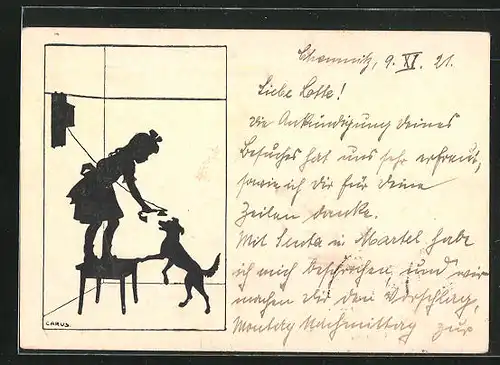 Chemnitz, 9. XI. 21.
Liebe Lotte!
die Ankündigung deines
Besuches hat uns sehr erfreut,
sowie ich dir für deine
Zeilen danke.
Mit Senta u Martel habe
ich mich besprochen, und wir
machen dir den Vorschlag,
Montag Nachmittag zur
CARUS.